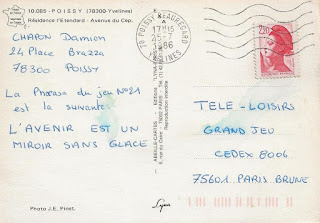 10.085 - POISSY (78300-Yvelines)
Résidence l'Étendard - Avenue du Cep.
CHAPON Damien
24 Place Brazza
78300 POISSY
La Phrase du jeu N°21
est la suivante:
L'AVENIR EST UN
MIROIR SANS GLACE
Photo J.E. Pinet.
ABEILLE-CARTES - ÉDITIONS
Reproduction interdite
78 POISSY BEAUREGARD
17H15
25-7
1986
YVELINES
2,20
TELE-LOISIRS
GRAND JEU
CEDEX 8006
75601 PARIS BRUNE